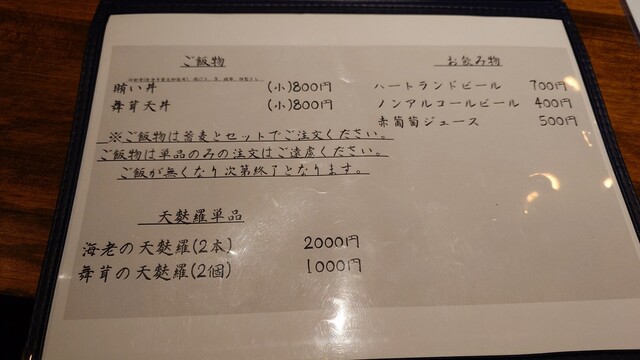 ご飯物
賄い丼 (小)800円
舞茸天丼 (小)800円
※ご飯物は蕎麦とセットでご注文ください。
ご飯物は単品のみの注文はご遠慮ください。
ご飯が無くなり次第終了となります。
天麩羅単品
海老の天麩羅(2本) 2000円
舞茸の天麩羅(2個) 1000円
お飲み物
ハートランドビール 700円
ノンアルコールビール 400円
赤葡萄ジュース 500円